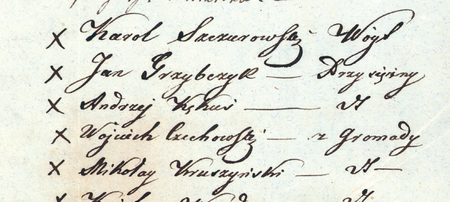 x Karol Szczurowski Wóyt
x Jan Grzybczyk — Przysiężny
x Andrzej Kękuś — dt
x Woyciech Czechowski — z Gromady
x Mikołay Kruszyński — dt —